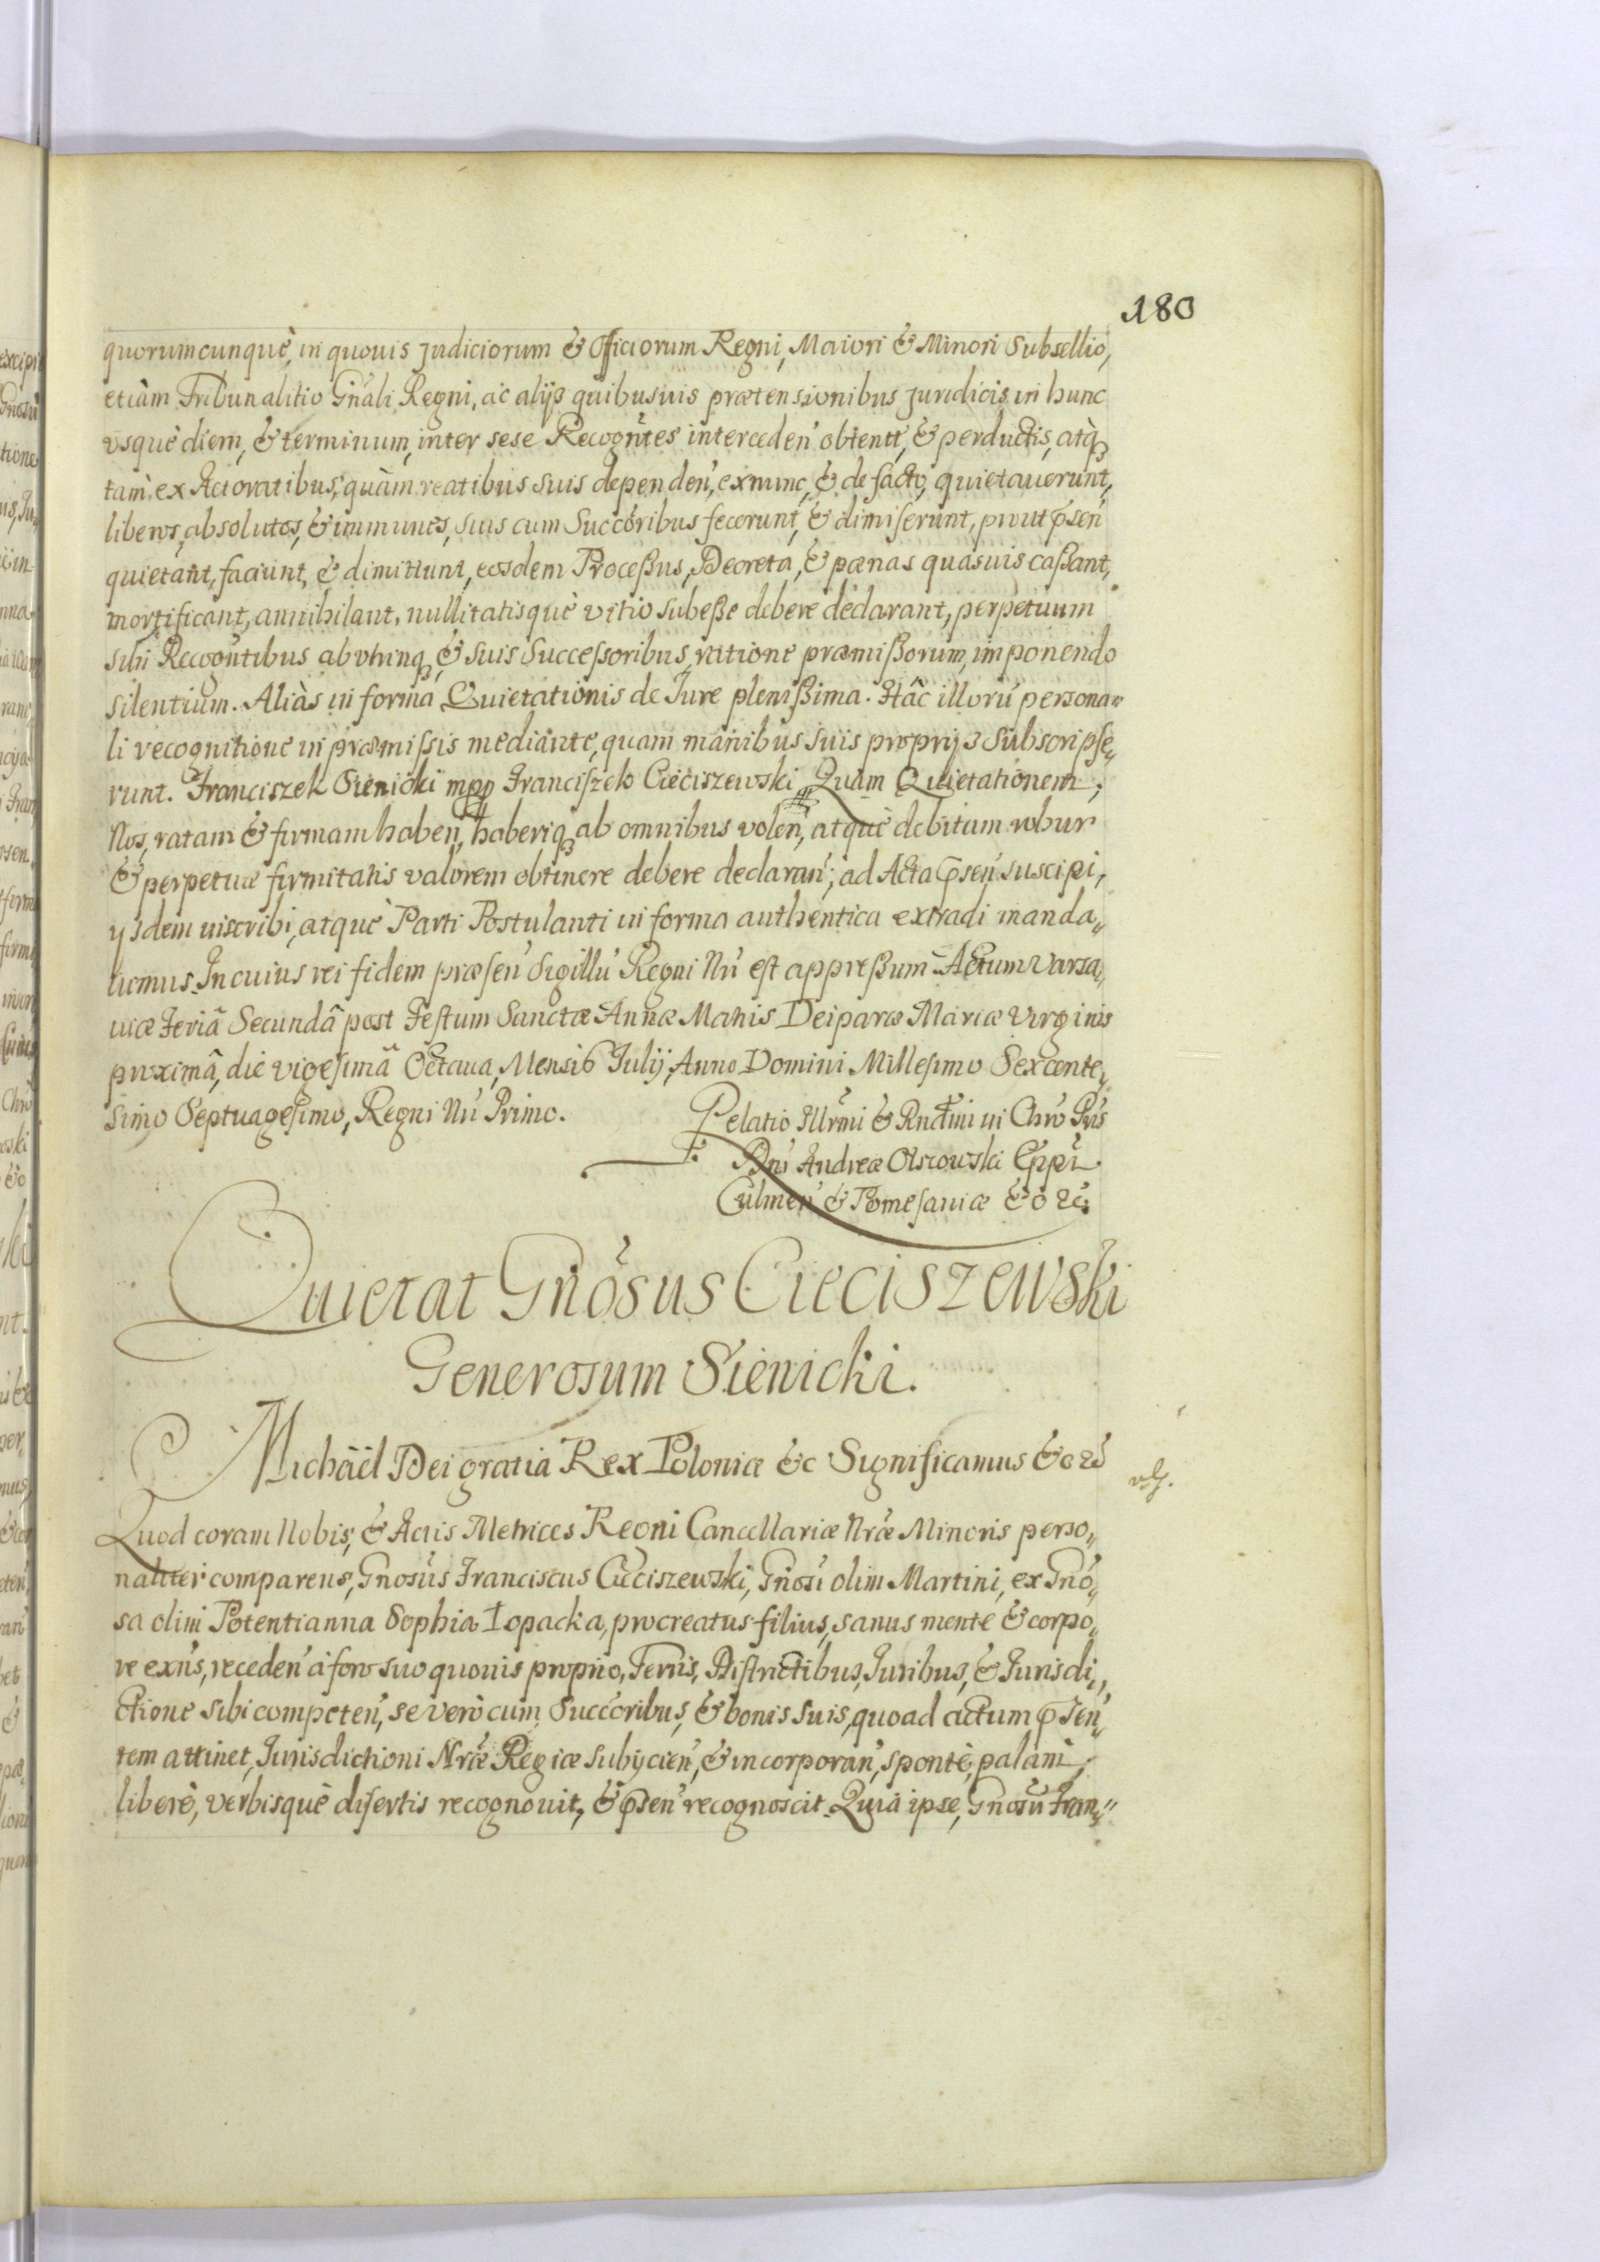 180
quorumcunquè, in quouis judiciorum & Officiorum Regni, Maiori & Minori Subsellio,
etiàm Tribunalitio Gnãli Regni, ac alijs quibusuis prætensionibus juridicis in hunc
vsquè diem, & terminum, inter sese Recogñtes interceden̾ obtent̃, & perductis, atq̃
tam̀ ex Actoratibus, quàm reatibus suis dependen̾, exnunc, & de facto, quietauerunt,
liberos, absolutos, & immunes, suis cum Succõribus fecerunt, & dimiserunt, prout p̃sen̾
quietant, faciunt, & dimittunt, eosdem Processus, Decreta, & pœnas quasuis cassant,
mortificant, annihilant, nullitatisquè vitio subesse debere declarant, perpetuum
sibi Recogñtibus abvtrinq̃, & suis Successoribus, ratione præmissorum, imponendo
silentium. Aliàs in forma Quietationis de Jure plenissima. Hâc illorũ persona-
li recognitione in præmissis mediante, quam manibus suis proprijs subscripse„
runt. Franciszek Sienicki mpp Franciszek Cieciszewski, Quam Quietationem,
Nos, ratam & firmam haben̾, haberiq̃ ab omnibus volen̾, atquè debitum robur
& perpetuæ firmitatis valorem obtinere debere declaran̾; ad Acta p̃sen̾ suscipi,
ijsdem inscribi, atquè Parti Postulanti in forma authentica extradi manda„
uimus. In cuius rei fidem præsen̾ Sigillũ Regni Nr̃i est appressum. Actum Varsa„
uiæ Feriâ Secundâ post Festum Sanctæ Annæ Matris Deiparæ Mariæ Virginis
proximâ, die vigesimâ Octaua, Mensis Julij, Anno Domini Millesimo Sexcente„
simo Septuagesimo, Regni Nr̃i Primo.
Relatio Illr̃mi & Rndm̃i in Chrõ Pr̃is
Dnĩ Andreæ Olszowski Ep̃pi
Culmen̾ & Pomesaniæ &c &c.
Quietat Gnõsus Cieciszewski
Generosum Sienicki.
Michäel Dei gratia Rex Poloniæ &c Significamus &c &c
Quod coram Nobis, & Actis Metrices Regni Cancellariæ Nr̃æ Minoris perso„
naliter comparens, Gnosũs Franciscus Cieciszewski, Gnosĩ olim Martini, ex Gnõ„
sa olim Potentianna Sophia Łopacka, procreatus filius, sanus mente & corpo„
re exñs, receden̾ à foro suo quouis proprio, Terris, Districtibus, Juribus, & Jurisdi„
ctione sibi competen̾, se verò cum Succõribus, & bonis suis, quoad actum p̃sen„
tem attinet, Jurisdictioni Nr̃æ Regiæ subijcien̾, & incorporan̾, spontè, palàm,
liberè, verbisquè disertis recognouit, & p̃sen̾ recognoscit. Quia ipse, Gnosũ Fran„